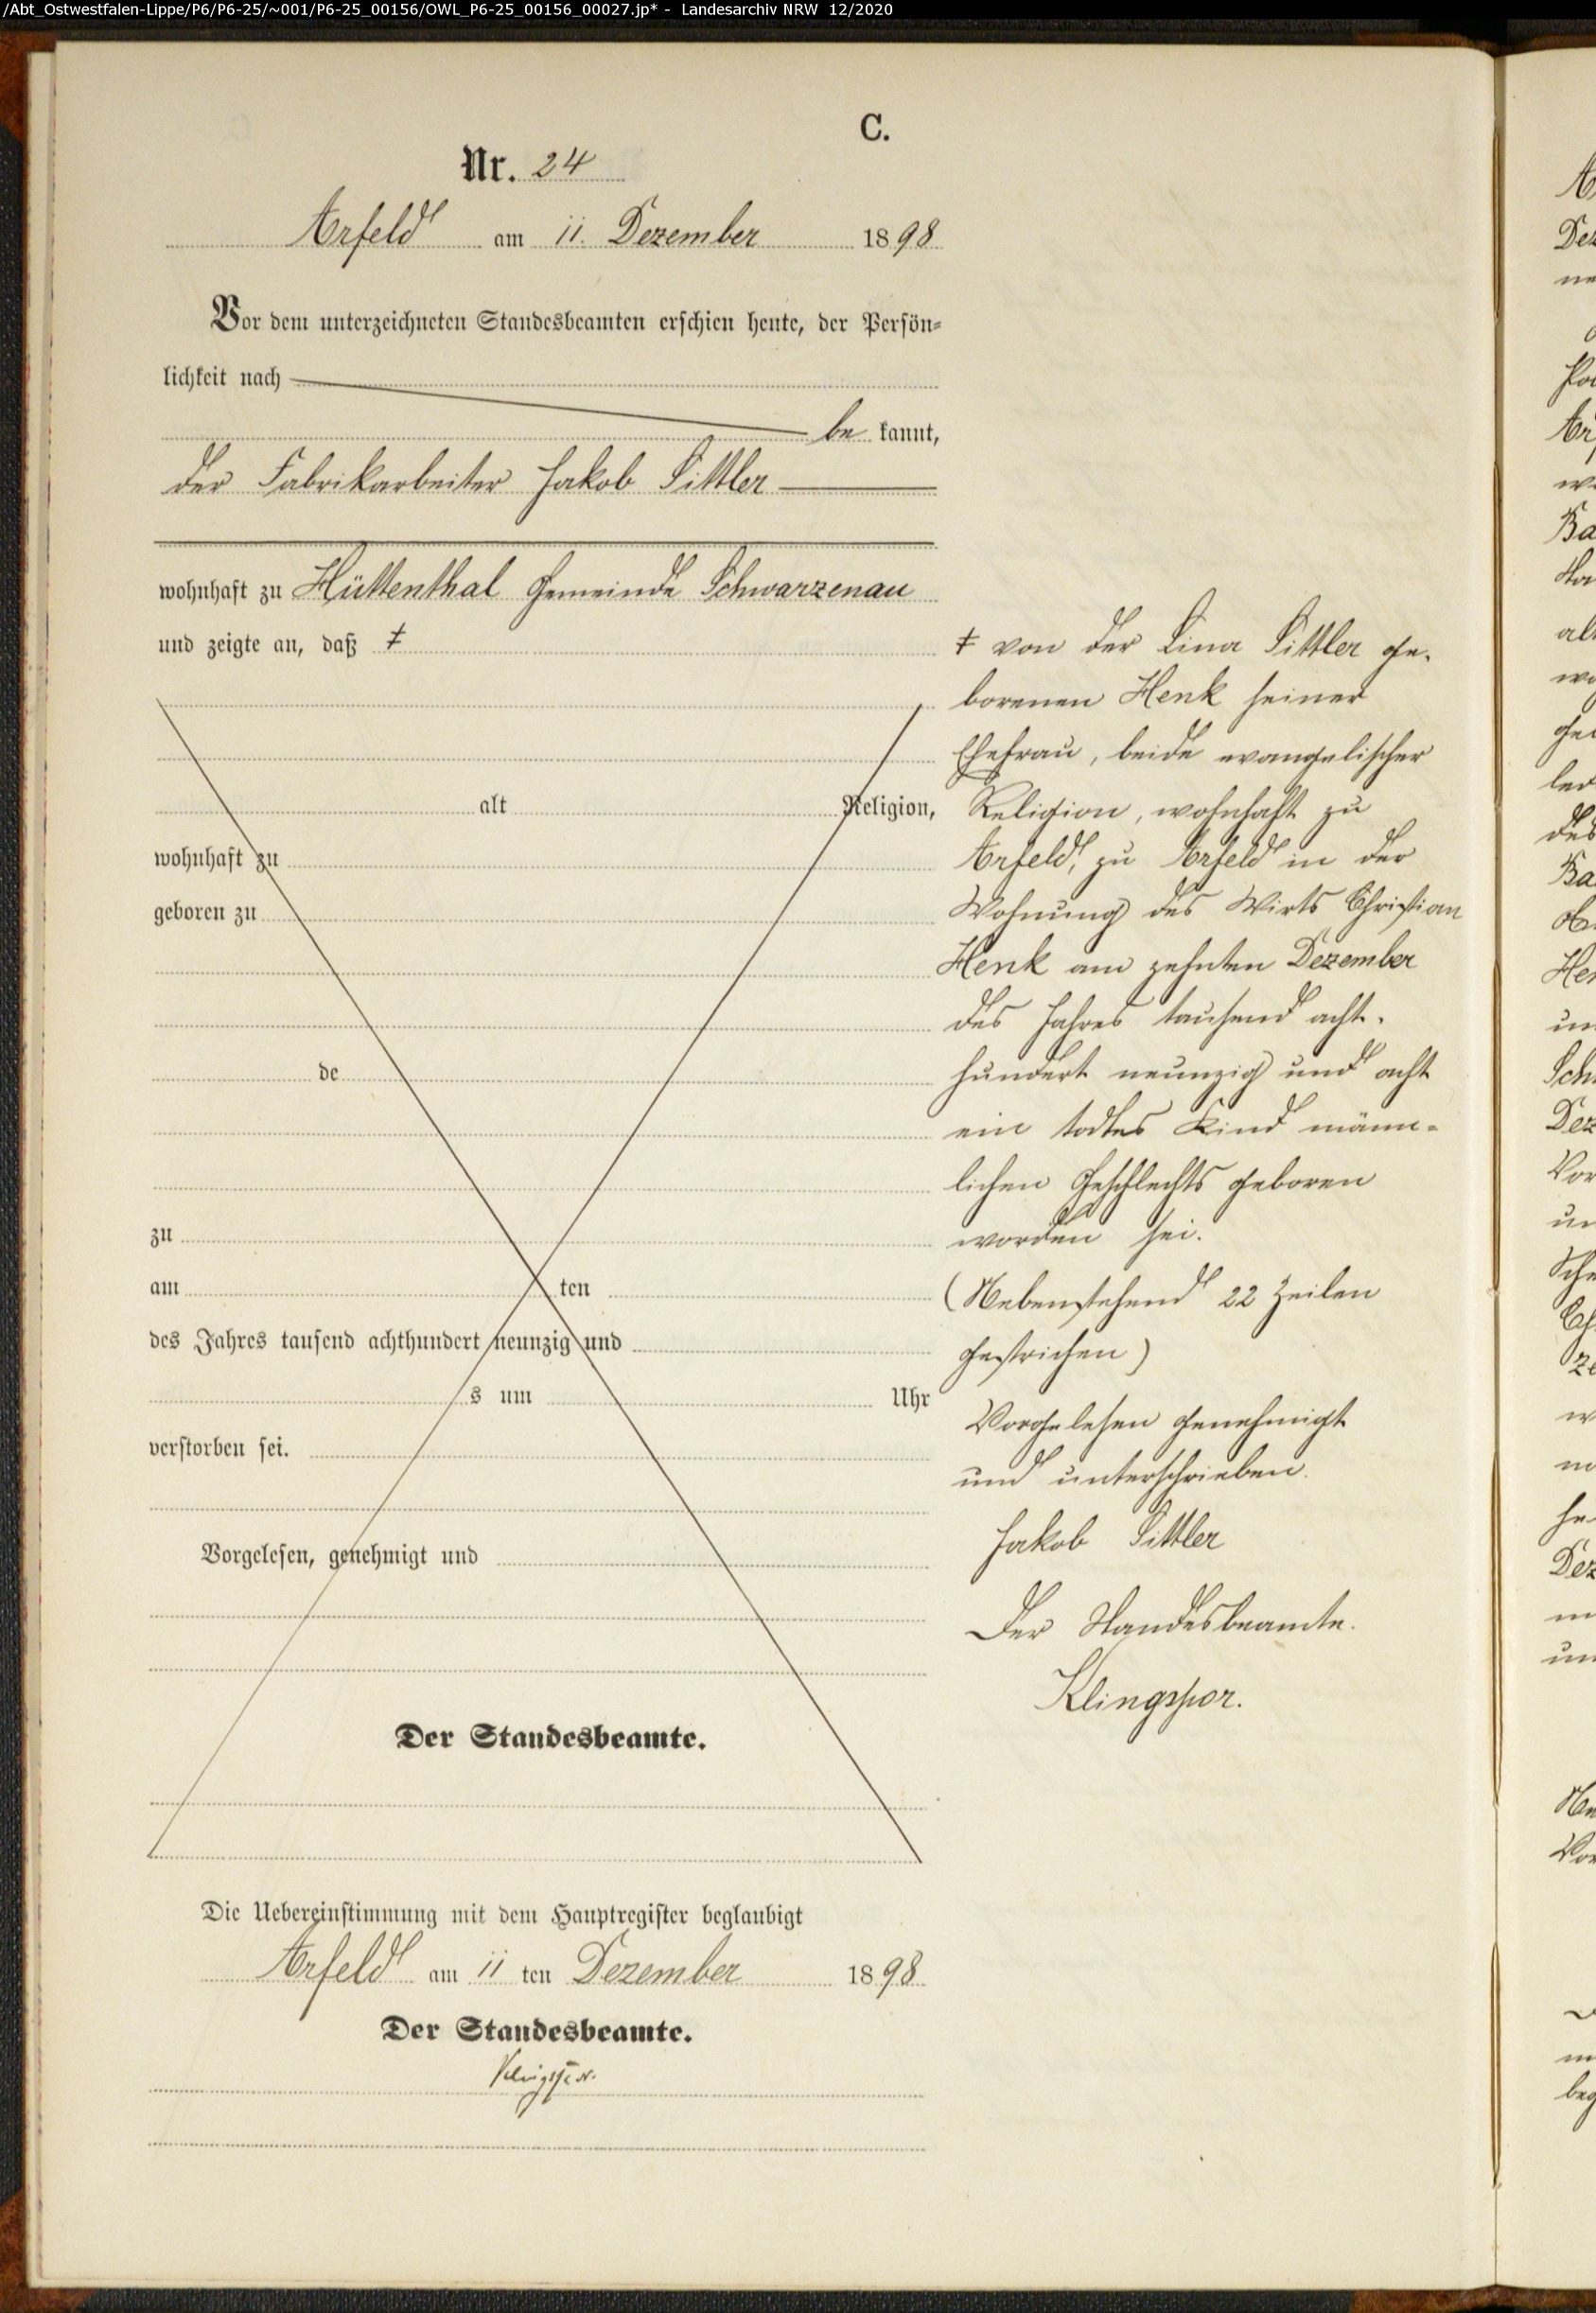 /Abt_Ostwestfalen-Lippe/P6/P6-25/~001/P6-25_00156/OWL_P6-25_00156_00027.jp* - Landesarchiv NRW 12/2020
C.
Nr. 24
Arfeld am 11. Dezember 1898
Vor dem unterzeichneten Standesbeamten erschien heute, der Persön-
lichkeit nach
be kannt,
der Fabrikarbeiter Jakob Sittler
wohnhaft zu Hüttenthal Gemeinde Schwarzenau
und zeigte an, daß ‡
alt Religion,
wohnhaft zu
geboren zu
de
zu
am ten
des Jahres tausend achthundert neunzig und
s um Uhr
verstorben sei.
Vorgelesen, genehmigt und
Der Standesbeamte.
‡ von der Lina Sittler ge-
borenen Henk seiner
Ehefrau, beide evangelischer
Religion, wohnhaft zu
Arfeld, zu Arfeld in der
Wohnung des Wirts Christian
Henk am zehnten Dezember
des Jahres tausend acht-
hundert neunzig und acht
ein todtes Kind männ-
lichen Geschlechts geboren
worden sei.
(Nebenstehend 22 Zeilen
gestrichen)
Vorgelesen genehmigt
und unterschrieben.
Jakob Sittler
Der Standesbeamte.
Klingspor.
Die Uebereinstimmung mit dem Hauptregister beglaubigt
Arfeld am 11 ten Dezember 1898
Der Standesbeamte.
Klingspor.